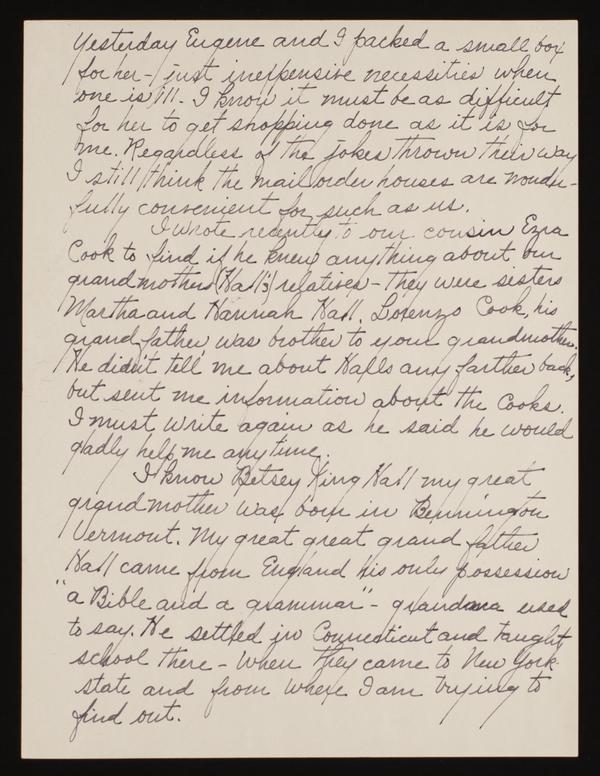 Yesterday Eugene and I packed a small box
for her - just inexpensive necessities when
one is ill - I know it must be as difficult
for her to get shopping done as it is for
me. Regardless of the jokes thrown their way
I still think the mail order houses are wonder-
fully convenient for such as us.
I wrote recently to our cousin Ezra
Cook to find if he knew anything about our
grandmothers (Hall's) relatives - they were sisters
Martha and Hannah Hall. Lorenzo Cook, his
grandfather was brother to your grandmother.
He didn't tell me about Halls any farther back,
but sent me information about the Cooks.
I must write again as he said he would
gadly help me any time.
I know Betsey King Hall my great
grandmother was born in Bennington
Vermont. My great great grand father
Hall came from England his only possession
"a Bible and a grammar" - grandma used
to say. He settled in Connecticut and taught
school there - When they came to New York
state and from where I am trying to
find out.